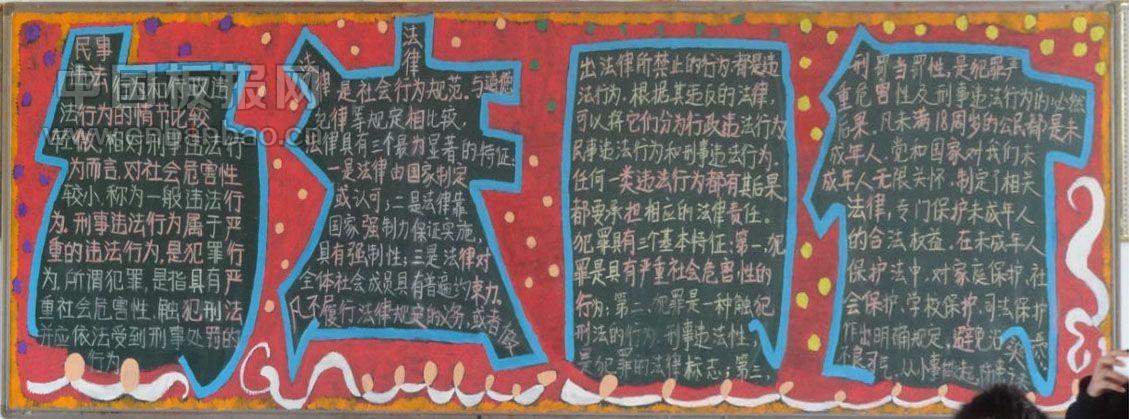 民事
违法行为和行政违
法行为的情节比较
轻微,相对刑事违法行
为而言,对社会危害性
较小,称为一般违法行
为,刑事违法行为属于严
重的违法行为,是犯罪行
为,所谓犯罪,是指具有严
重社会危害性,触犯刑法
并应依法受到刑事处罚的
行为
法律
法律是社会行为规范,与道德
纪律等规定相比较,
法律具有三个最为显著的特征:
一是法律由国家制定
或认可;二是法律靠
国家强制力保证实施,
具有强制性;三是法律对
全体社会成员具有普遍约束力.
凡不履行法律规定的义务,或者在
出法律所禁止的行为都是违
法行为.根据其违反的法律,
可以将它们分为行政违法行为
民事违法行为和刑事违法行为.
任何一类违法行为都有其后果,
都要承担相应的法律责任。
犯罪具有三个基本特征:第一,犯
罪是具有严重社会危害性的
行为;第二,犯罪是一种触犯
刑法的行为.刑事违法性,
是犯罪的法律标志;第三,
刑罚当罚性,是犯罪严
重危害性及刑事违法行为的必然
后果.凡未满18周岁的公民都是未
成年人.党和国家对我们未
成年人无限关怀,制定了相关
法律,专门保护未成年人
的合法权益.在未成年人
保护法中,对家庭保护,社
会保护,学校保护,司法保护
作出明确规定,避免沾染
不良习气,从小事做起
中国板报网